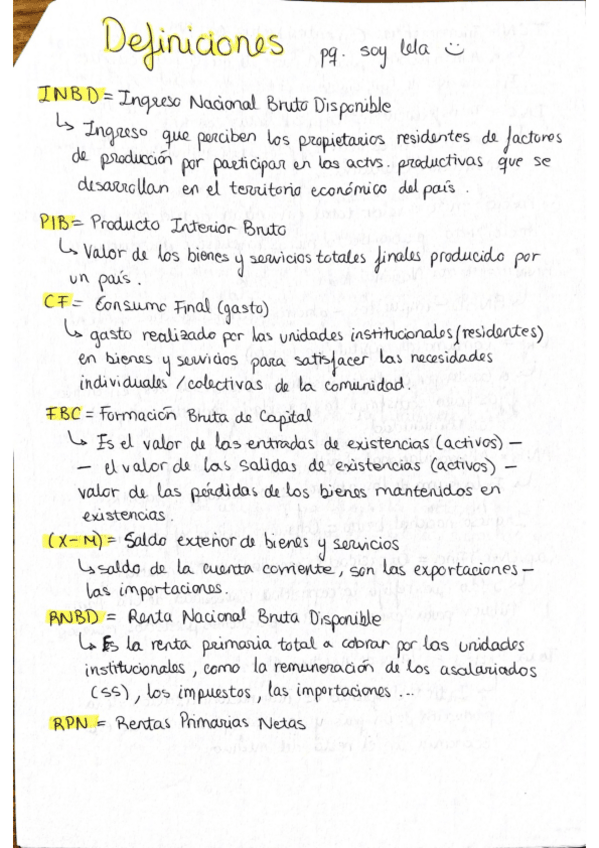 Definiciones pq. soy lela
INBD = Ingreso Nacional Bruto Disponible
↳ Ingreso que perciben los propietarios residentes de factores
de producción por participar en las actvs. productivas que se
desarrollan en el territorio económico del país.
PIB = Producto Interior Bruto
↳ Valor de los bienes y servicios totales finales producido por
un país.
CF = Consumo Final (gasto)
↳ gasto realizado por las unidades institucionales (residentes)
en bienes y servicios para satisfacer las necesidades
individuales / colectivas de la comunidad.
FBC = Formación Bruta de Capital
↳ Es el valor de las entradas de existencias (activos) –
– el valor de las salidas de existencias (activos) –
valor de las pérdidas de los bienes mantenidos en
existencias.
(X-M) = Saldo exterior de bienes y servicios
↳ saldo de la cuenta corriente, son las exportaciones –
las importaciones.
RNBD = Renta Nacional Bruta Disponible
↳ Es la renta primaria total a cobrar por las unidades
institucionales, como la remuneración de los asalariados
(SS), los impuestos, las importaciones ...
RPN = Rentas Primarias Netas